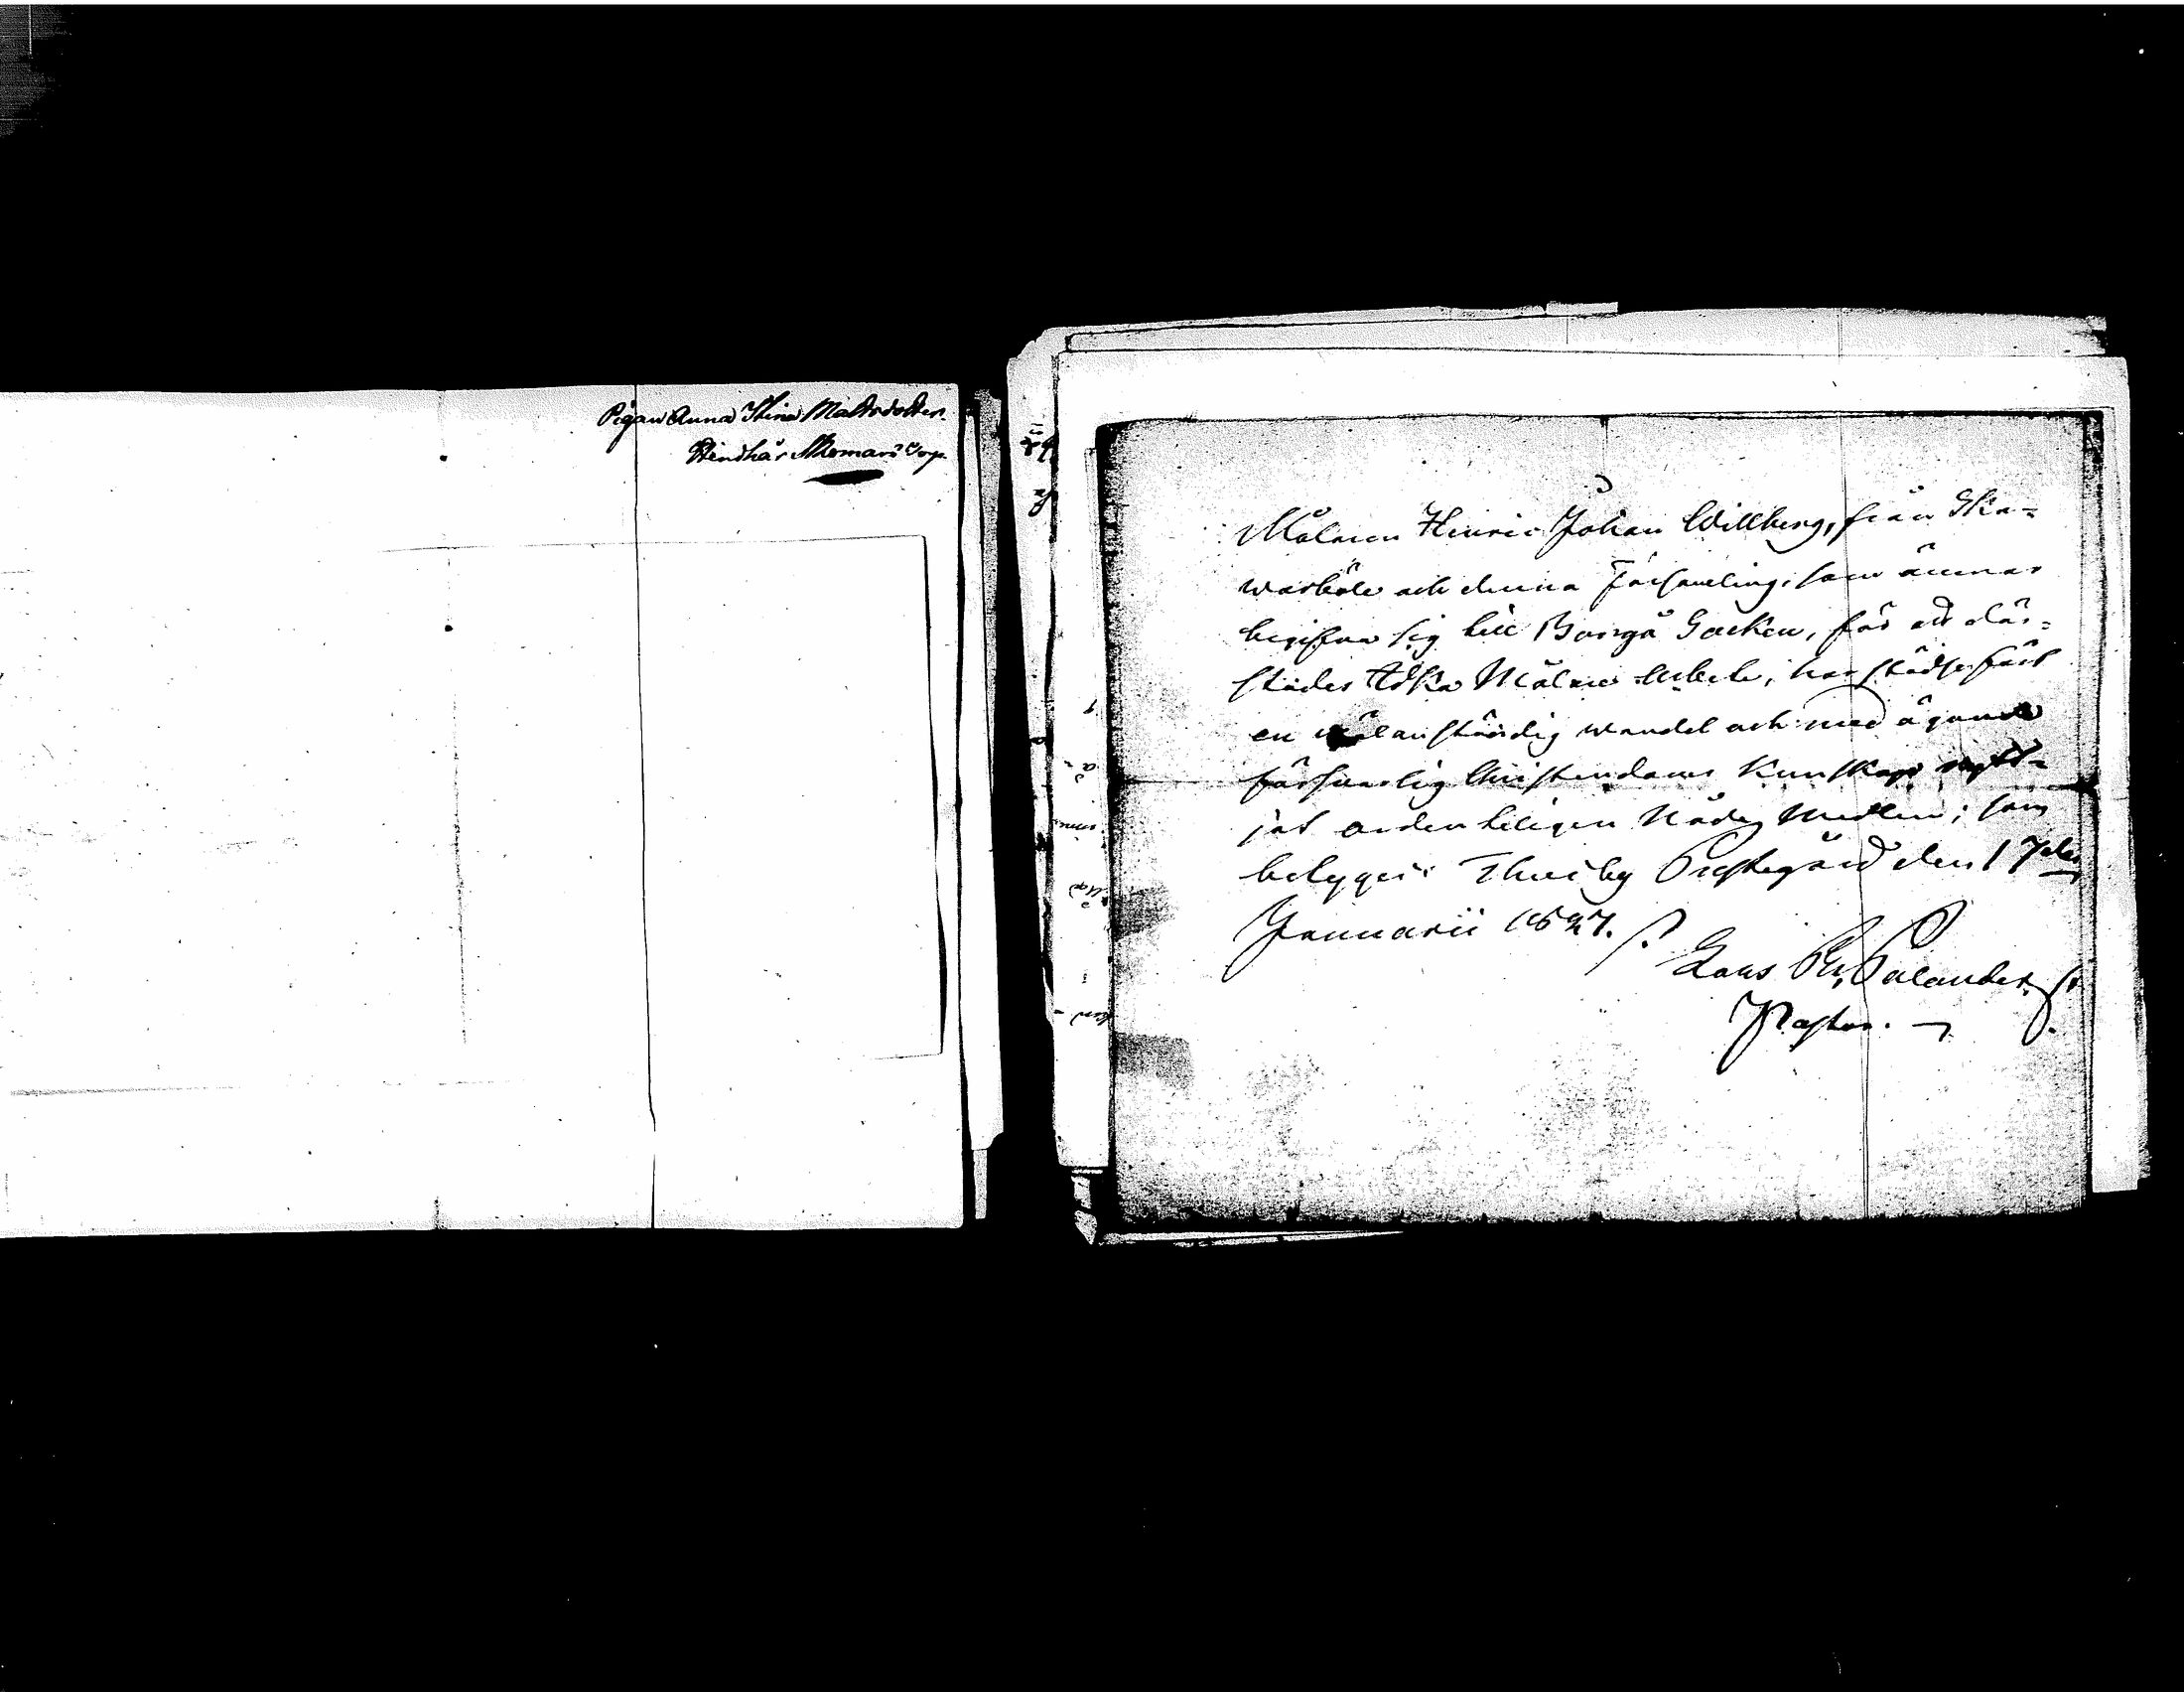 Pigan Anna Stina Mattsdotter.
Hindhår Skomars Torp.
Målaren Hinric Johan Willberg, från Ska=
warböle och denna Församling, som ämnar
begifva sig till Borgå Socken, för att där=
städes idka Målare Arbete, har städse fört
en wälanständig wandel och med ägande
försvarlig Christendoms Kunskap nytt=
jat onden heligen Nådenes Medlen; som
betygas. Thusby Prestegård den 17de
Januarii 1827.
Lars Palander.
Pastor.